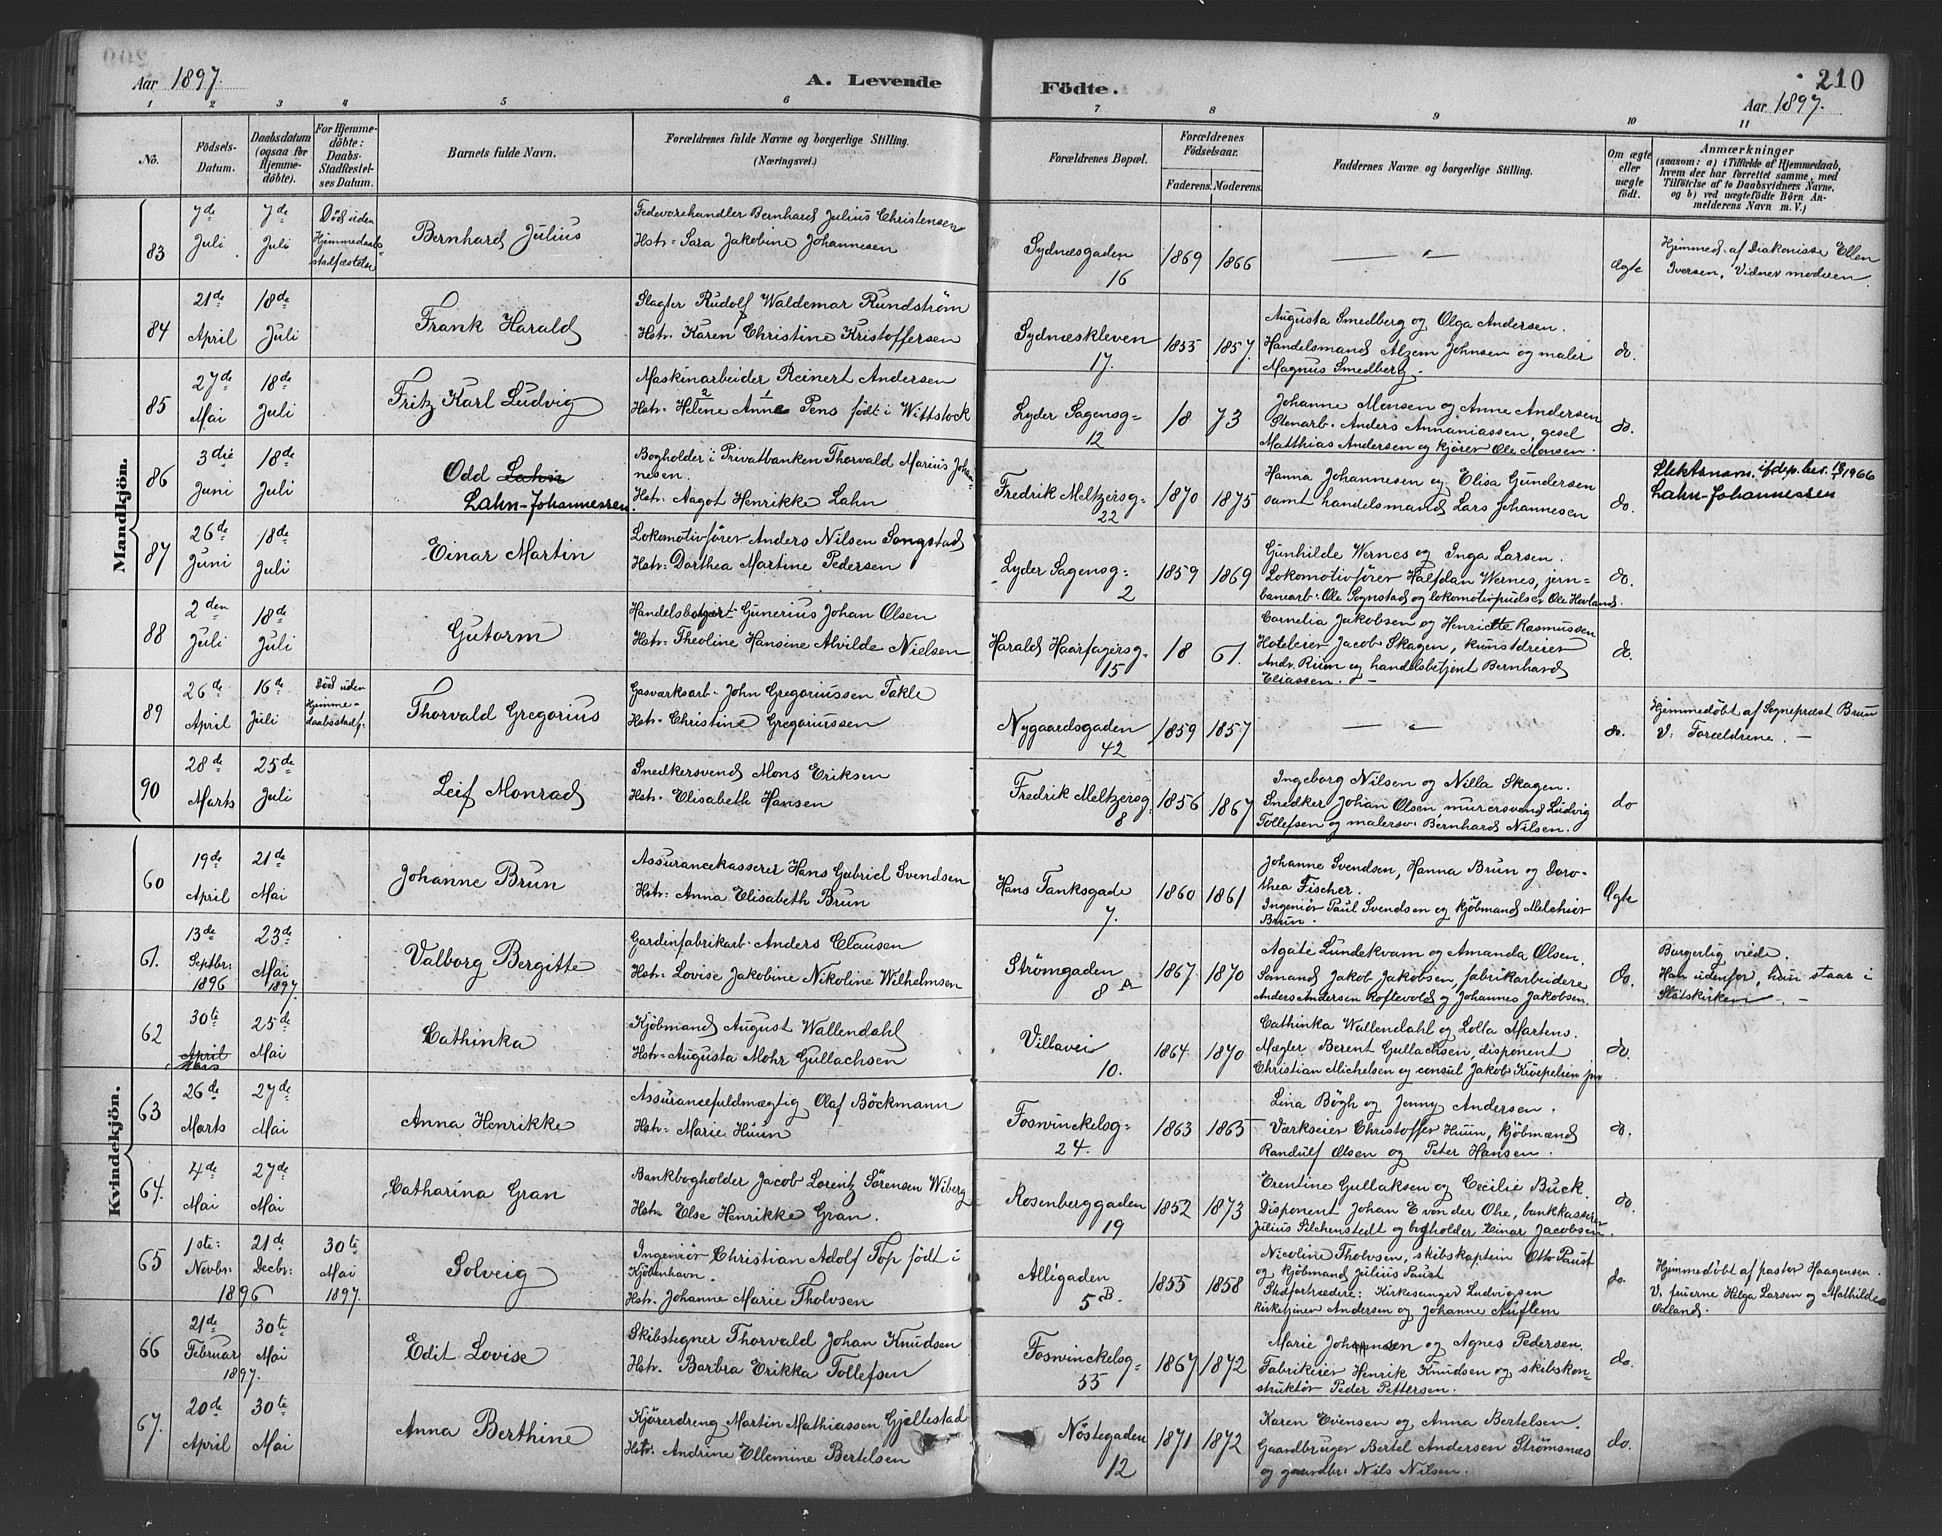 210
Aar 1897.
A. Levende Födte.
Aar 1897.
1 2 3 4 5 6 7 8 9 10 11
No.
Födsels-Datum.
Daabsdatum (ogsaa for Hjemme-döbte).
For Hjemme-döbte: Daabs-Stadfæstel-ses Datum.
Barnets fulde Navn.
Forældrenes fulde Navne og borgerlige Stilling.
(Næringsvei.)
Forældrenes Bopæl.
Forældrenes Födselsaar.
Faderens. Moderens.
Faddernes Navne og borgerlige Stilling.
Om ægte eller uægte födt.
Anmærkninger
(saasom: a) i Tilfælde af Hjemmedaab, hvem der har forrettet samme, med Tilföielse af to Daabsvidners Navne, og b) ved uægtefödte Börn An-melderens Navn m. V.)
Mandkjön.
83 7de Juli 7de Juli Död uden Hjemmedaabs stadfæstelse
Bernhard Julius
Fedevarehandler Bernhard Julius Christensen
Hstr. Sara Jakobine Johannesen
Sydnæsgaden 16 1869 1866 — " — Ægte
Hjemmed. af Diakonisse Ellen
Iversen, Vidner moderen.
84 21de April 18de Juli
Frank Harald
Slagter Rudolf Waldemar Rundström
Hstr. Karen Christine Kristoffersen
Sydnæskleven 17. 1855 1857.
Augusta Smedberg og Olga Andersen.
Handelsmand Alzem Johnsen og maler
Magnus Smedberg.
do.
85 27de Mai 18de Juli
Fritz Karl Ludvig
Maskinarbeider Reinert Andersen
Hstr. Helene 2 Anne 1 Pens födt i Wittstock
Lyder Sagensg= 12 18 73
Johanne Monsen og Anne Andersen
Stenarb. Anders Annaniassen, gesel
Matthias Andersen og kjörer Ole Monsen.
do.
86 3die Juni 18de Juli
Odd Lahn
Lahn-Johannessen
Bogholder i Privatbanken Thorvald Marius Johan-
nesen.
Hstr. Aagot Henrikke Lahn
Fredrik Meltzersg= 22 1870 1875
Hanna Johannesen og Elisa Gundersen
samt handelsmand Lars Johannesen
do.
Slektsnavn if. dep. bev. 1966
Lahn-Johannessen
87 26de Juni 18de Juli
Einar Martin
Lokomotivförer Anders Nilsen Songstad
Hstr. Dorthea Martine Pedersen
Lyder Sagensg= 2 1859 1869
Gunhilde Wernes og Inga Larsen.
Lokomotivförer Halfdan Wernes, jern-
banearb. Ole Sognstad og lokomotivpudser Ole Hovland.
do.
88 2den Juli 18de Juli
Gutorm
Gunerius Johan Olsen
Hstr. Theoline Hansine Alvilde Nielsen
Harald Haarfagersg= 15 18 61.
Cornelia Jakobsen og Henriette Rasmussen
Hoteleier Jacob Skagen, kunstdreier
Andr. Riim og handelsbetjent Bernhard
Eliassen. —
do.
89 26de April 16de Juli Död uden Hjemme-daabsstadf.
Thorvald Gregorius
Gasværksarb. John Gregoriussen Takle
Hstr. Christine Gregoriussen
Nygaardsgaden 42 1859 1857 — " — do.
Hjemmedöbt af Sognepræst Brun
V: Forældrene. —
90 28de Marts 25de Juli
Leif Monrad
Snedkersvend Mons Eriksen
Hstr. Elisabeth Hansen
Fredrik Meltzersg. 8 1856 1867
Ingeborg Nilsen og Nilla Skagen.
Snedker Johan Olsen, murersvend Ludvig
Tollefsen og malersv. Bernhard Nilsen.
do
Kvindekjön.
60 19de April 21de Mai
Johanne Brun
Assurancekasserer Hans Gabriel Svendsen
Hstr. Anna Elisabeth Brun
Hans Tanksgade 7. 1860 1861
Johanne Svendsen, Hanna Brun og Doro-
thea Fischer.
Ingeniör Paul Svendsen og kjöbmand Melchior
Brun.
Ægte
61. 13de Septbr: 1896 23de Mai 1897.
Valborg Bergitte
Gardinfabrikarb. Anders Clausen
Hstr. Lovise Jakobine Nikoline Wilhelmsen
Strömgaden 8 A 1867 1870
Agate Lundekvam og Amanda Olsen.
Sömand Jakob Jakobsen, fabrikarbeidere
Anders Andersen Roftevold og Johannes Jakobsen.
do.
Borgerlig viede.
Han udenfor, hun staar i
Statskirken. —
62 30te April Mars 25de Mai
Cathinka
Kjöbmand August Wallendahl
Hstr. Augusta Mohr Gullachsen
Villavei 10. 1864 1870
Cathinka Wallendahl og Lolla Martens.
Mægler Berent Gullachsen, disponent
Christian Michelsen og consul Jakob jun.
do.
63 26de Marts 27de Mai
Anna Henrikke
Assurancefuldmægtig Olaf Böckmann
Hstr. Marie Huun
Fosvinckelsg= 24. 1863 1865
Lina Bögh og Jenny Andersen.
Værkseier Christoffer Huun, kjöbmænd
Randulf Olsen og Peter Hansen.
do.
64. 4de Mai 27de Mai
Catharina Gran
Bankbogholder Jacob Lorentz Sörensen Wiberg
Hstr. Else Henrikke Gran.
Rosenberggaden 19 1852 1873
Erentine Gullaksen og Cecilie Buck.
Disponent Johan E von der Ohe, bankkasserer
Julius Silchenstedt og bogholder Einar Jacobsen.
do.
65 1ste: Novbr: 21de Decbr: 1896 30te Mai 1897.
Solveig
Ingeniör Christian Adolf Top födt i
Kjöbenhavn.
Hstr. Johanne Marie Tholvsen
Allégaden 5 B. 1855 1858
Nicoline Tholvsen, skibskaptein Otto Paust
og kjöbmand Julius Paust
Stedfortrædere: Kirkesanger Ludvigsen
kirketjener Andersen og Johanne Auflem
do.
Hjemmedöbt af pastor Haagensen.
V. fruerne Helga Larsen og Mathilde
Udland.
66 21de Februar 1897. 30te Mai
Edit Lovise
Skibstegner Thorvald Johan Knudsen
Hstr. Barbra Erikka Tollefsen
Fosvinckelsg= 55 1867 1872
Marie Johannsen og Agnes Pedersen.
Fabrikeier Henrik Knudsen og skibskon-
struktör Peder Pettersen.
do.
67. 20de April 30te Mai
Anna Berthine
Kjöreredreng Martin Mathiassen Gjellestad
Hstr. Andrine Ellemine Bertelsen
Nöstegaden 12 1871 1872
Karen Evensen og Anna Bertelsen.
Gaardbruger Bertel Andersen Strömsnæs
og gaardbr: Nils Nilsen.
do.